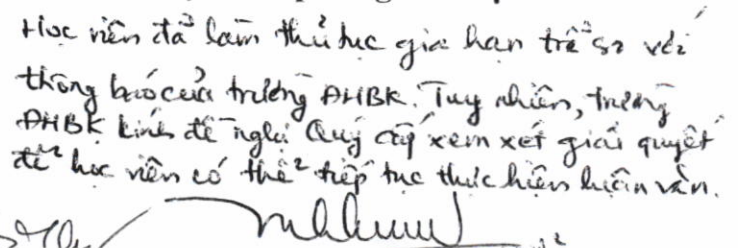 Học viên đã làm thủ tục gia hạn trễ so với
thông báo của trường ĐHBK. Tuy nhiên, trường
ĐHBK kính đề nghị Quý cấp xem xét giải quyết
để học viên có thể tiếp tục thực hiện luận văn.